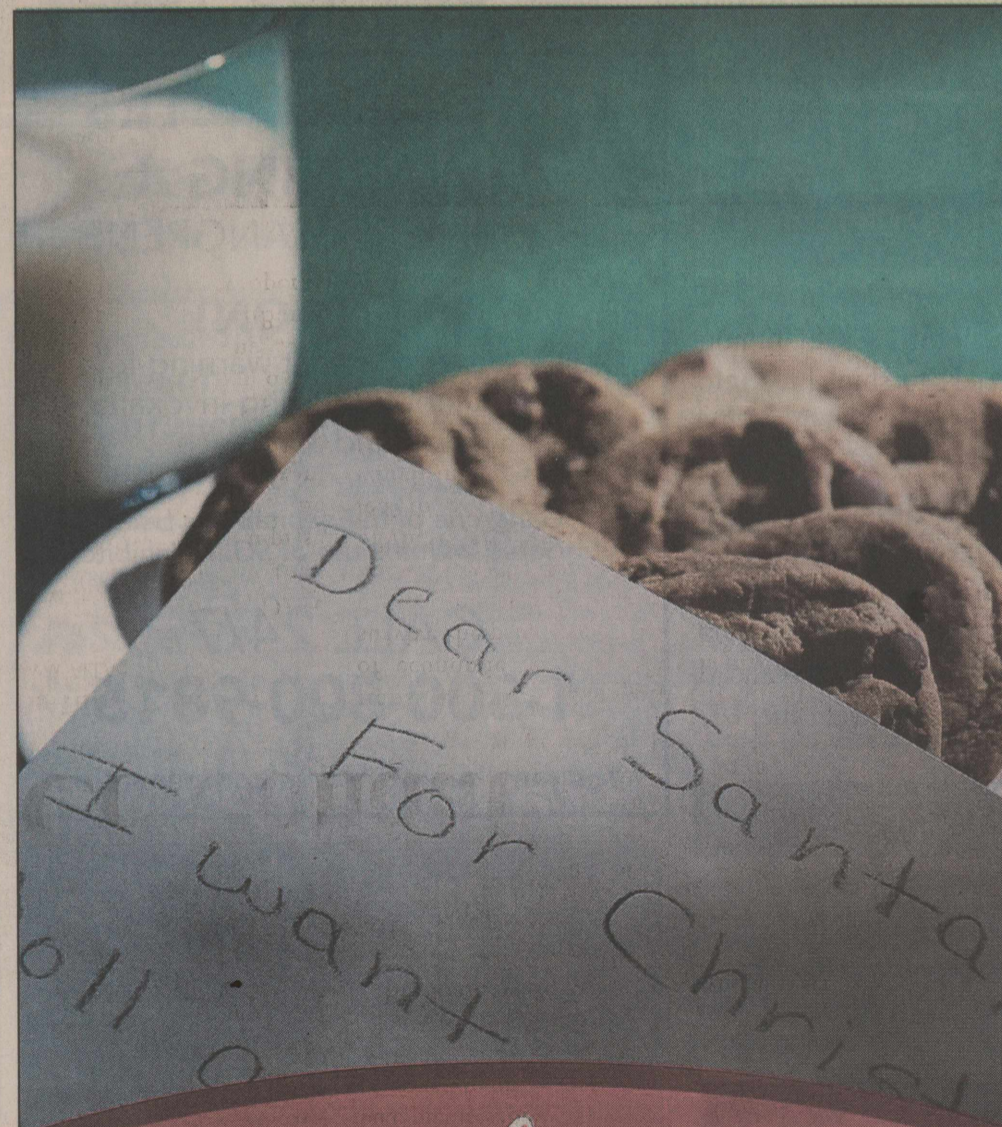 Dear Santa
For Christ
I want
oll